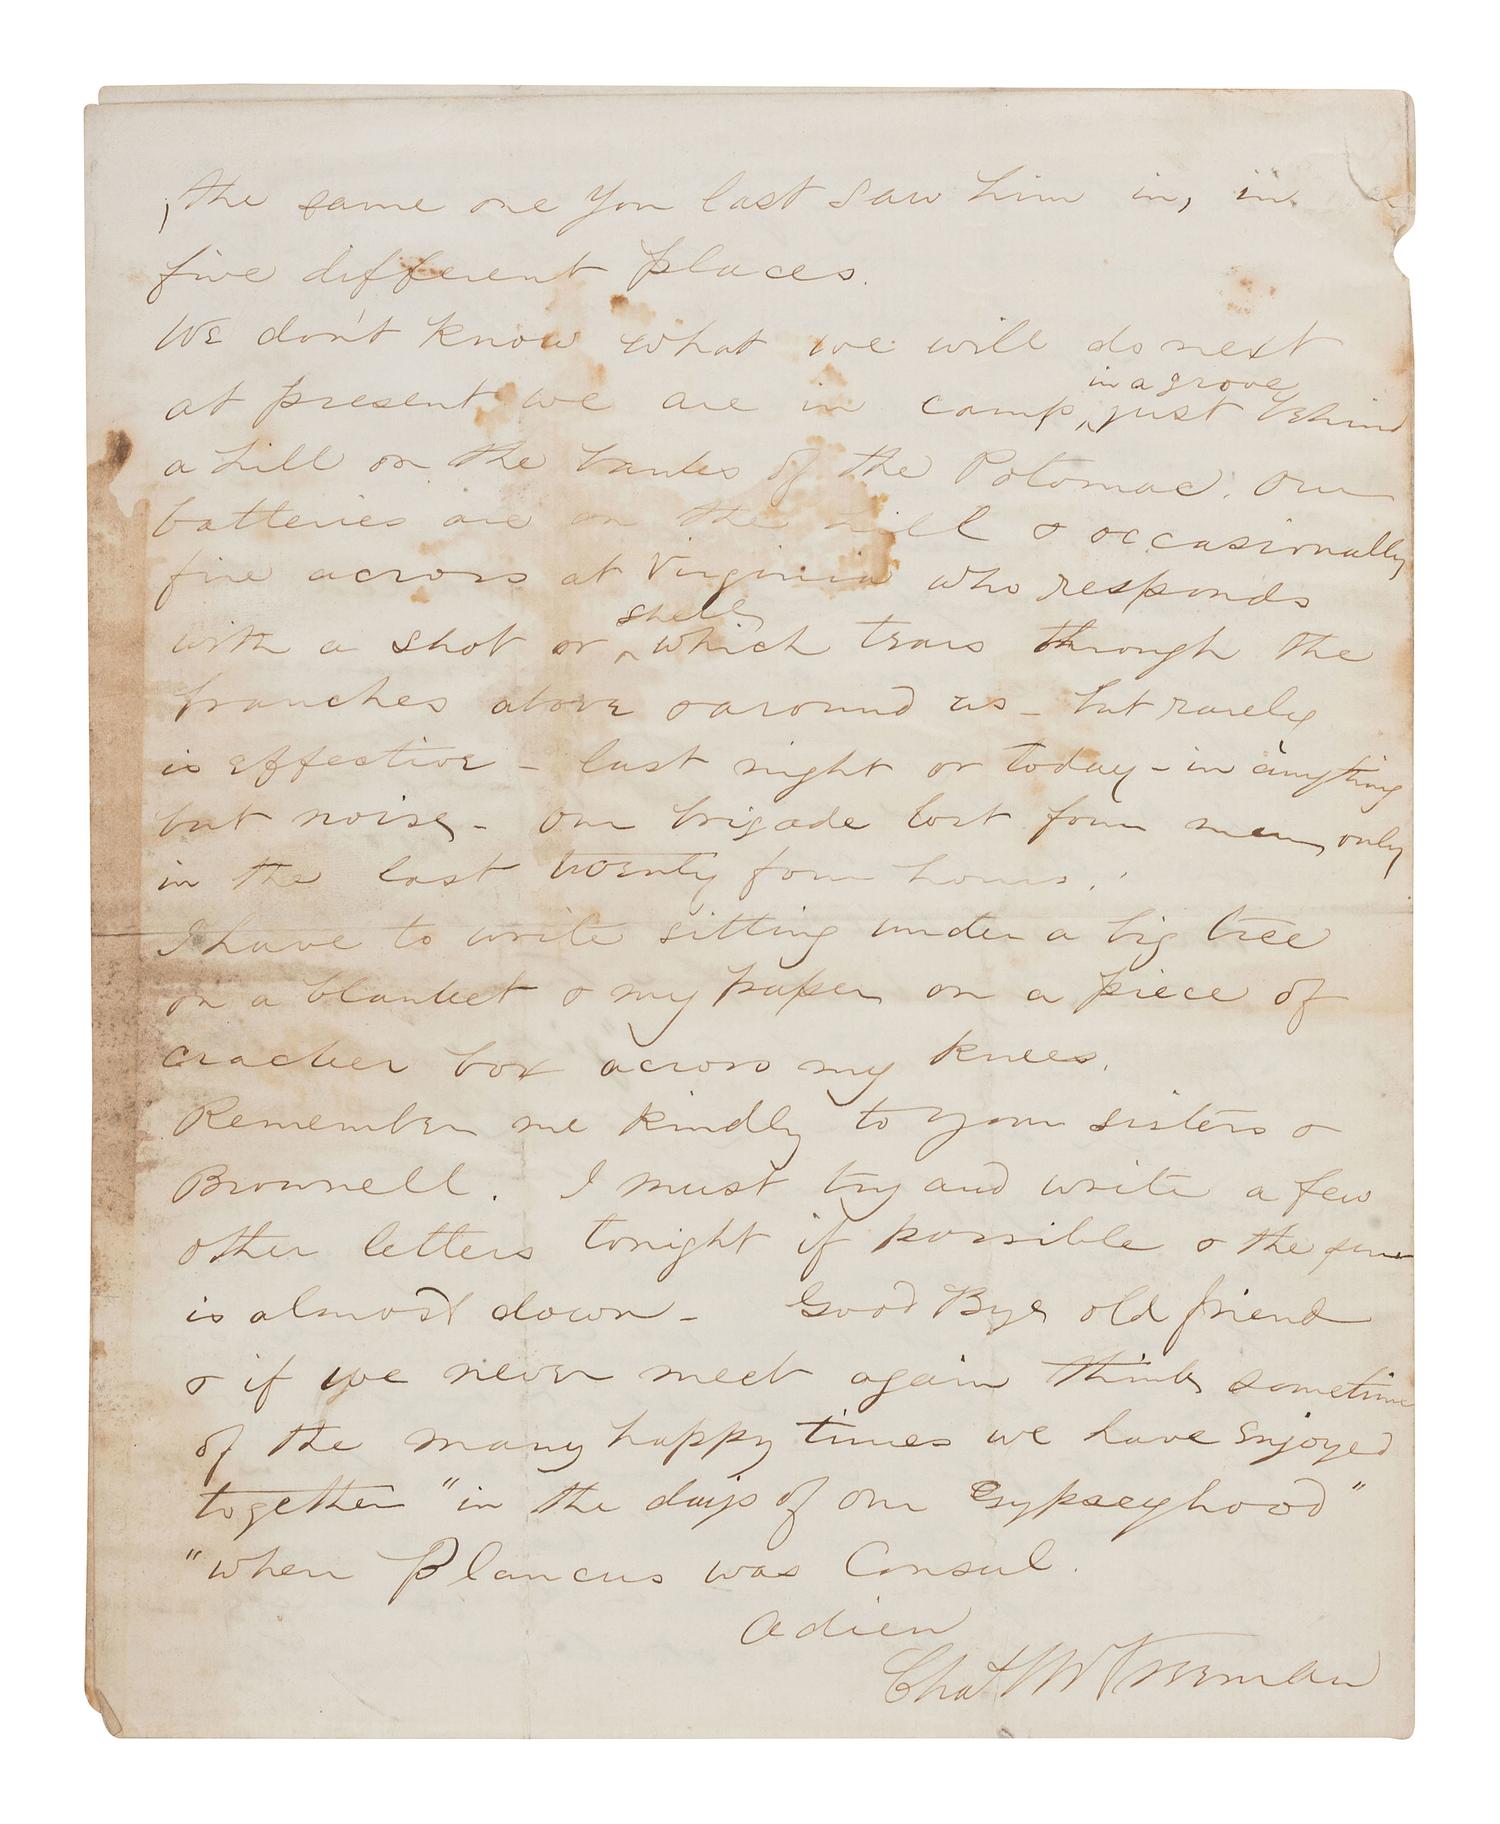 the same one you last saw him in, in
five different places.
We don't know what we will do next
at present we are in camp, in a grove just behind
a hill on the banks of the Potomac. Our
batteries are on the hill & occasionally
fire across at Virginia who responds
with a shot or shell which tears through the
branches above & around us - but rarely
is effective - last night or today - in anything
but noise. - Our brigade lost four men, only
in the last twenty four hours.
I have to write sitting under a big tree
on a blanket & my paper on a piece of
cracker box across my knees.
Remember me kindly to your sisters &
Brownell. I must try and write a few
other letters tonight if possible & the sun
is almost down - Good Bye old friend
& if we never meet again think sometime
of the many happy times we have enjoyed
together "in the days of our Gypseyhood"
"when Plancus was Consul.
Adieu
Chas W Freeman